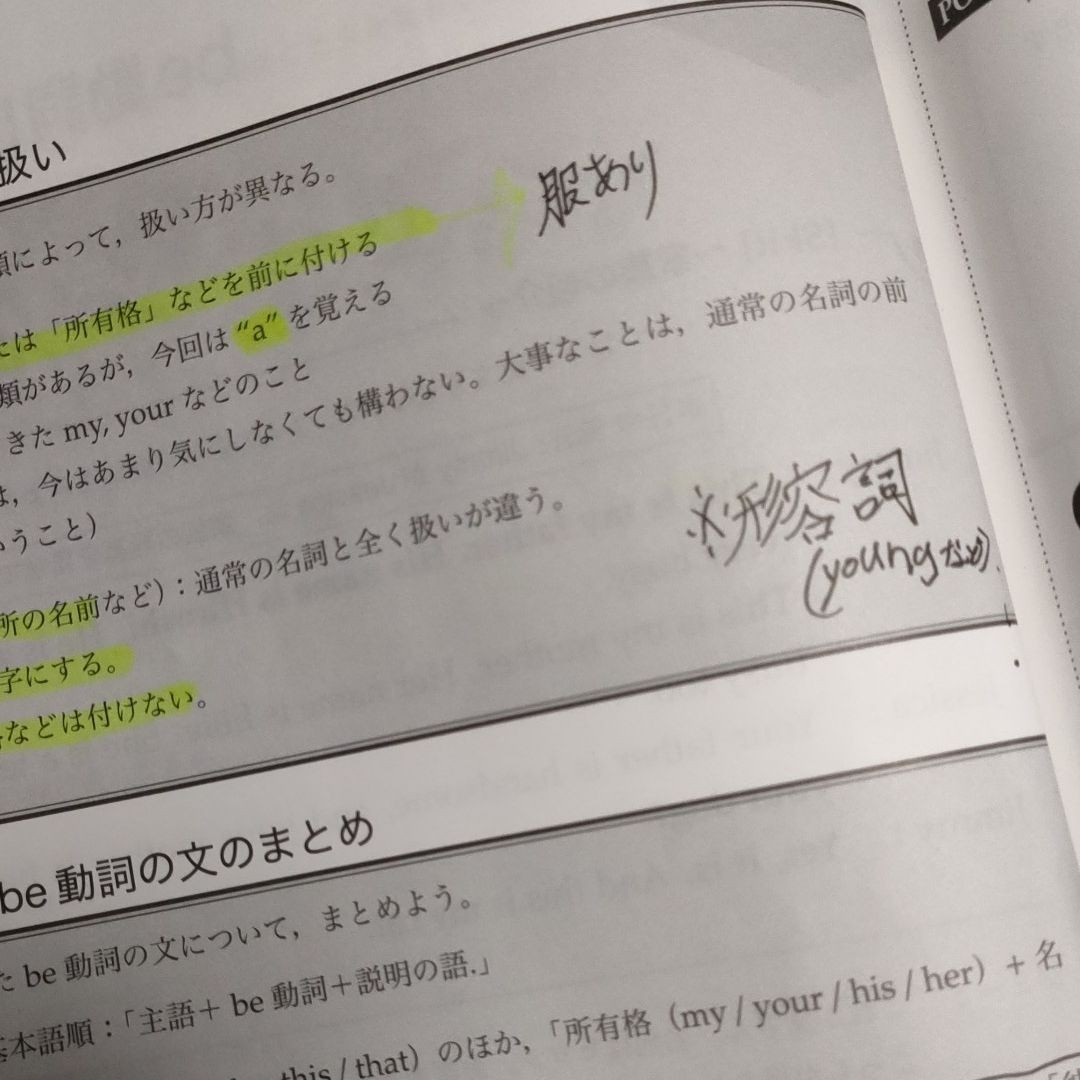 扱い
類によって，扱い方が異なる。
服あり
たは「所有格」などを前に付ける
類があるが，今回は“a”を覚える
きた my, your などのこと
は，今はあまり気にしなくても構わない。大事なことは，通常の名詞の前
いうこと）
所の名前など）：通常の名詞と全く扱いが違う。
※形容詞
(youngなど)
字にする。
などは付けない。
be 動詞の文のまとめ
た be 動詞の文について，まとめよう。
基本語順：「主語＋ be 動詞＋説明の語.」
this / that）のほか，「所有格（my / your / his / her）＋名